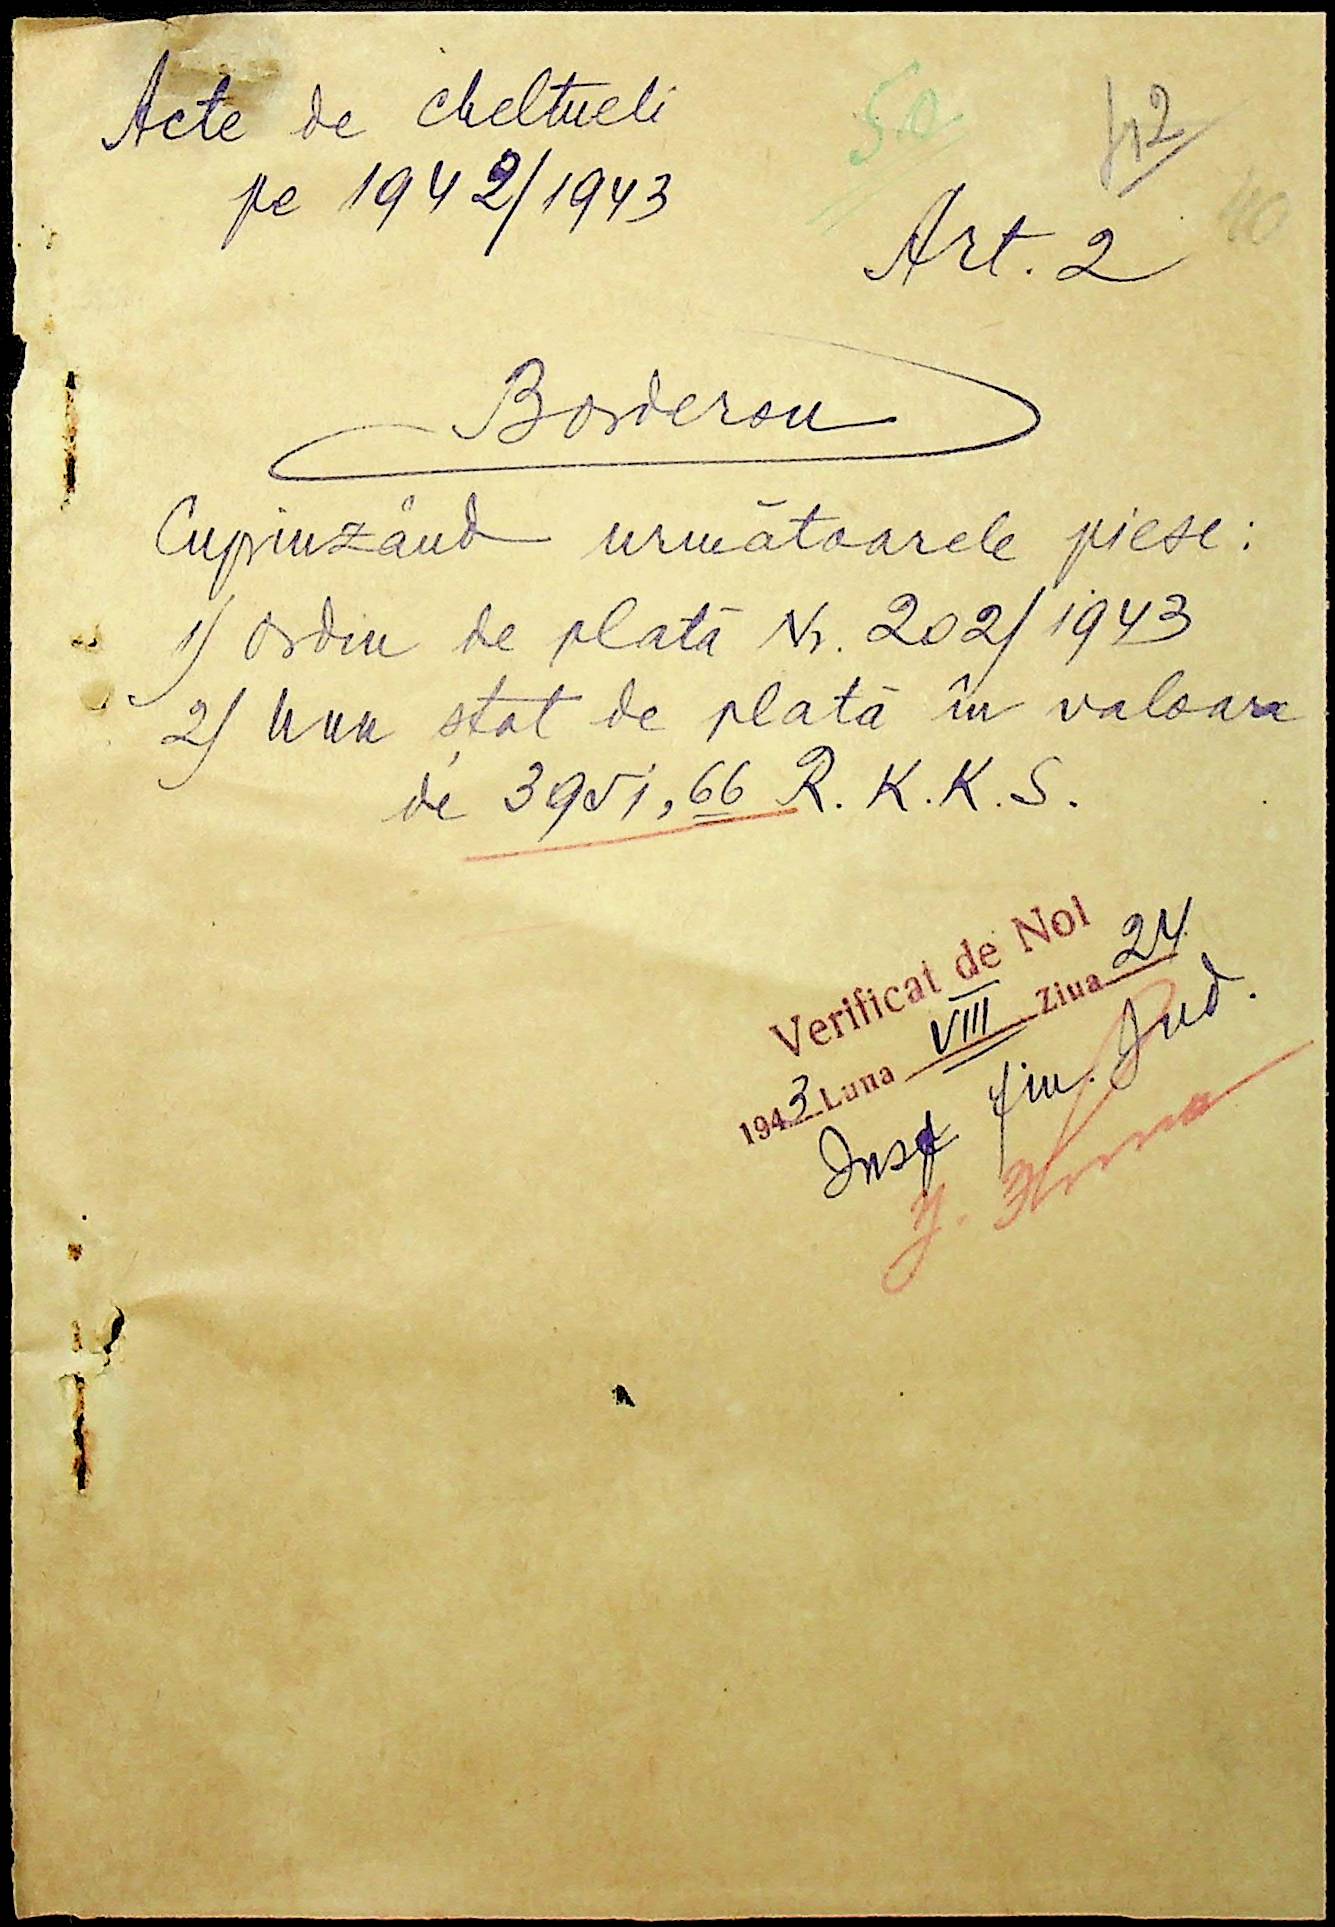 Acte de cheltueli
pe 1942/1943
50
42
40
Art. 2
Borderou
Cuprinzând următoarele piese:
1) Ordin de plată Nr. 202/1943
2) Unu ștat de plată în valoare
de 3951,66 R.K.K.S.
Verificat de Noi
1943 Luna VIII Ziua 24
Insp fin. Jud.